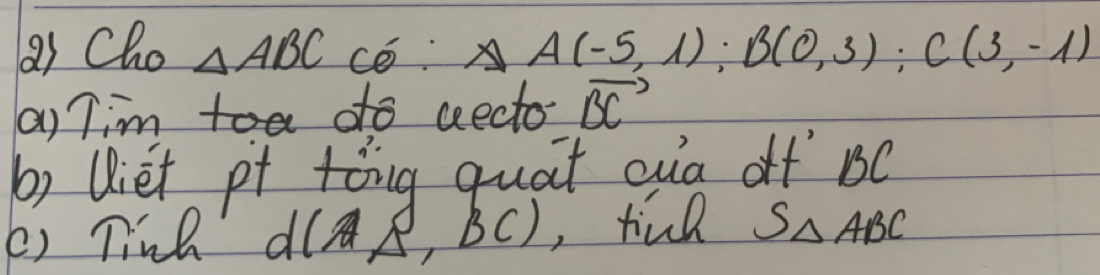 2) Cho △ABC có: A(-5, 1); B(0, 3); C(3, -1)
a) Tìm toạ độ vectơ \overrightarrow{BC}
b) Viết pt tổng quát của đt BC
c) Tính d(A, BC), tính S△ABC